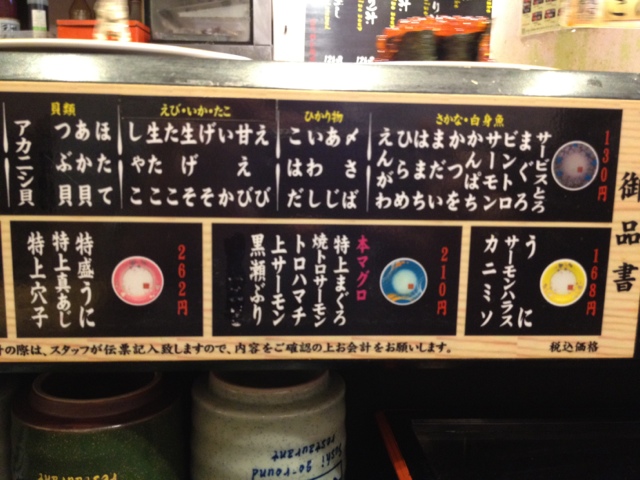 御品書
130円
さかな・白身魚
サービスとろ
まぐろ
ビントロ
サーモン
かんぱち
かつを
まだい
はまち
ひらめ
えんがわ
ひかり物
〆さば
あじ
いわし
こはだ
えび・いか・たこ
えび
甘えび
いか
げそ
生げそ
たこ
生たこ
しやこ
貝類
ほたて
あか貝
つぶ貝
アカニシ貝
168円
うに
サーモンハラス
カニミソ
210円
本マグロ
特上まぐろ
焼トロサーモン
トロハマチ
上サーモン
黒瀬ぶり
262円
特盛うに
特上真あじ
特上穴子
の際は、スタッフが伝票記入致しますので、内容をご確認の上お会計をお願いします。
税込価格
Sushi go-round
restaurant
restaurant